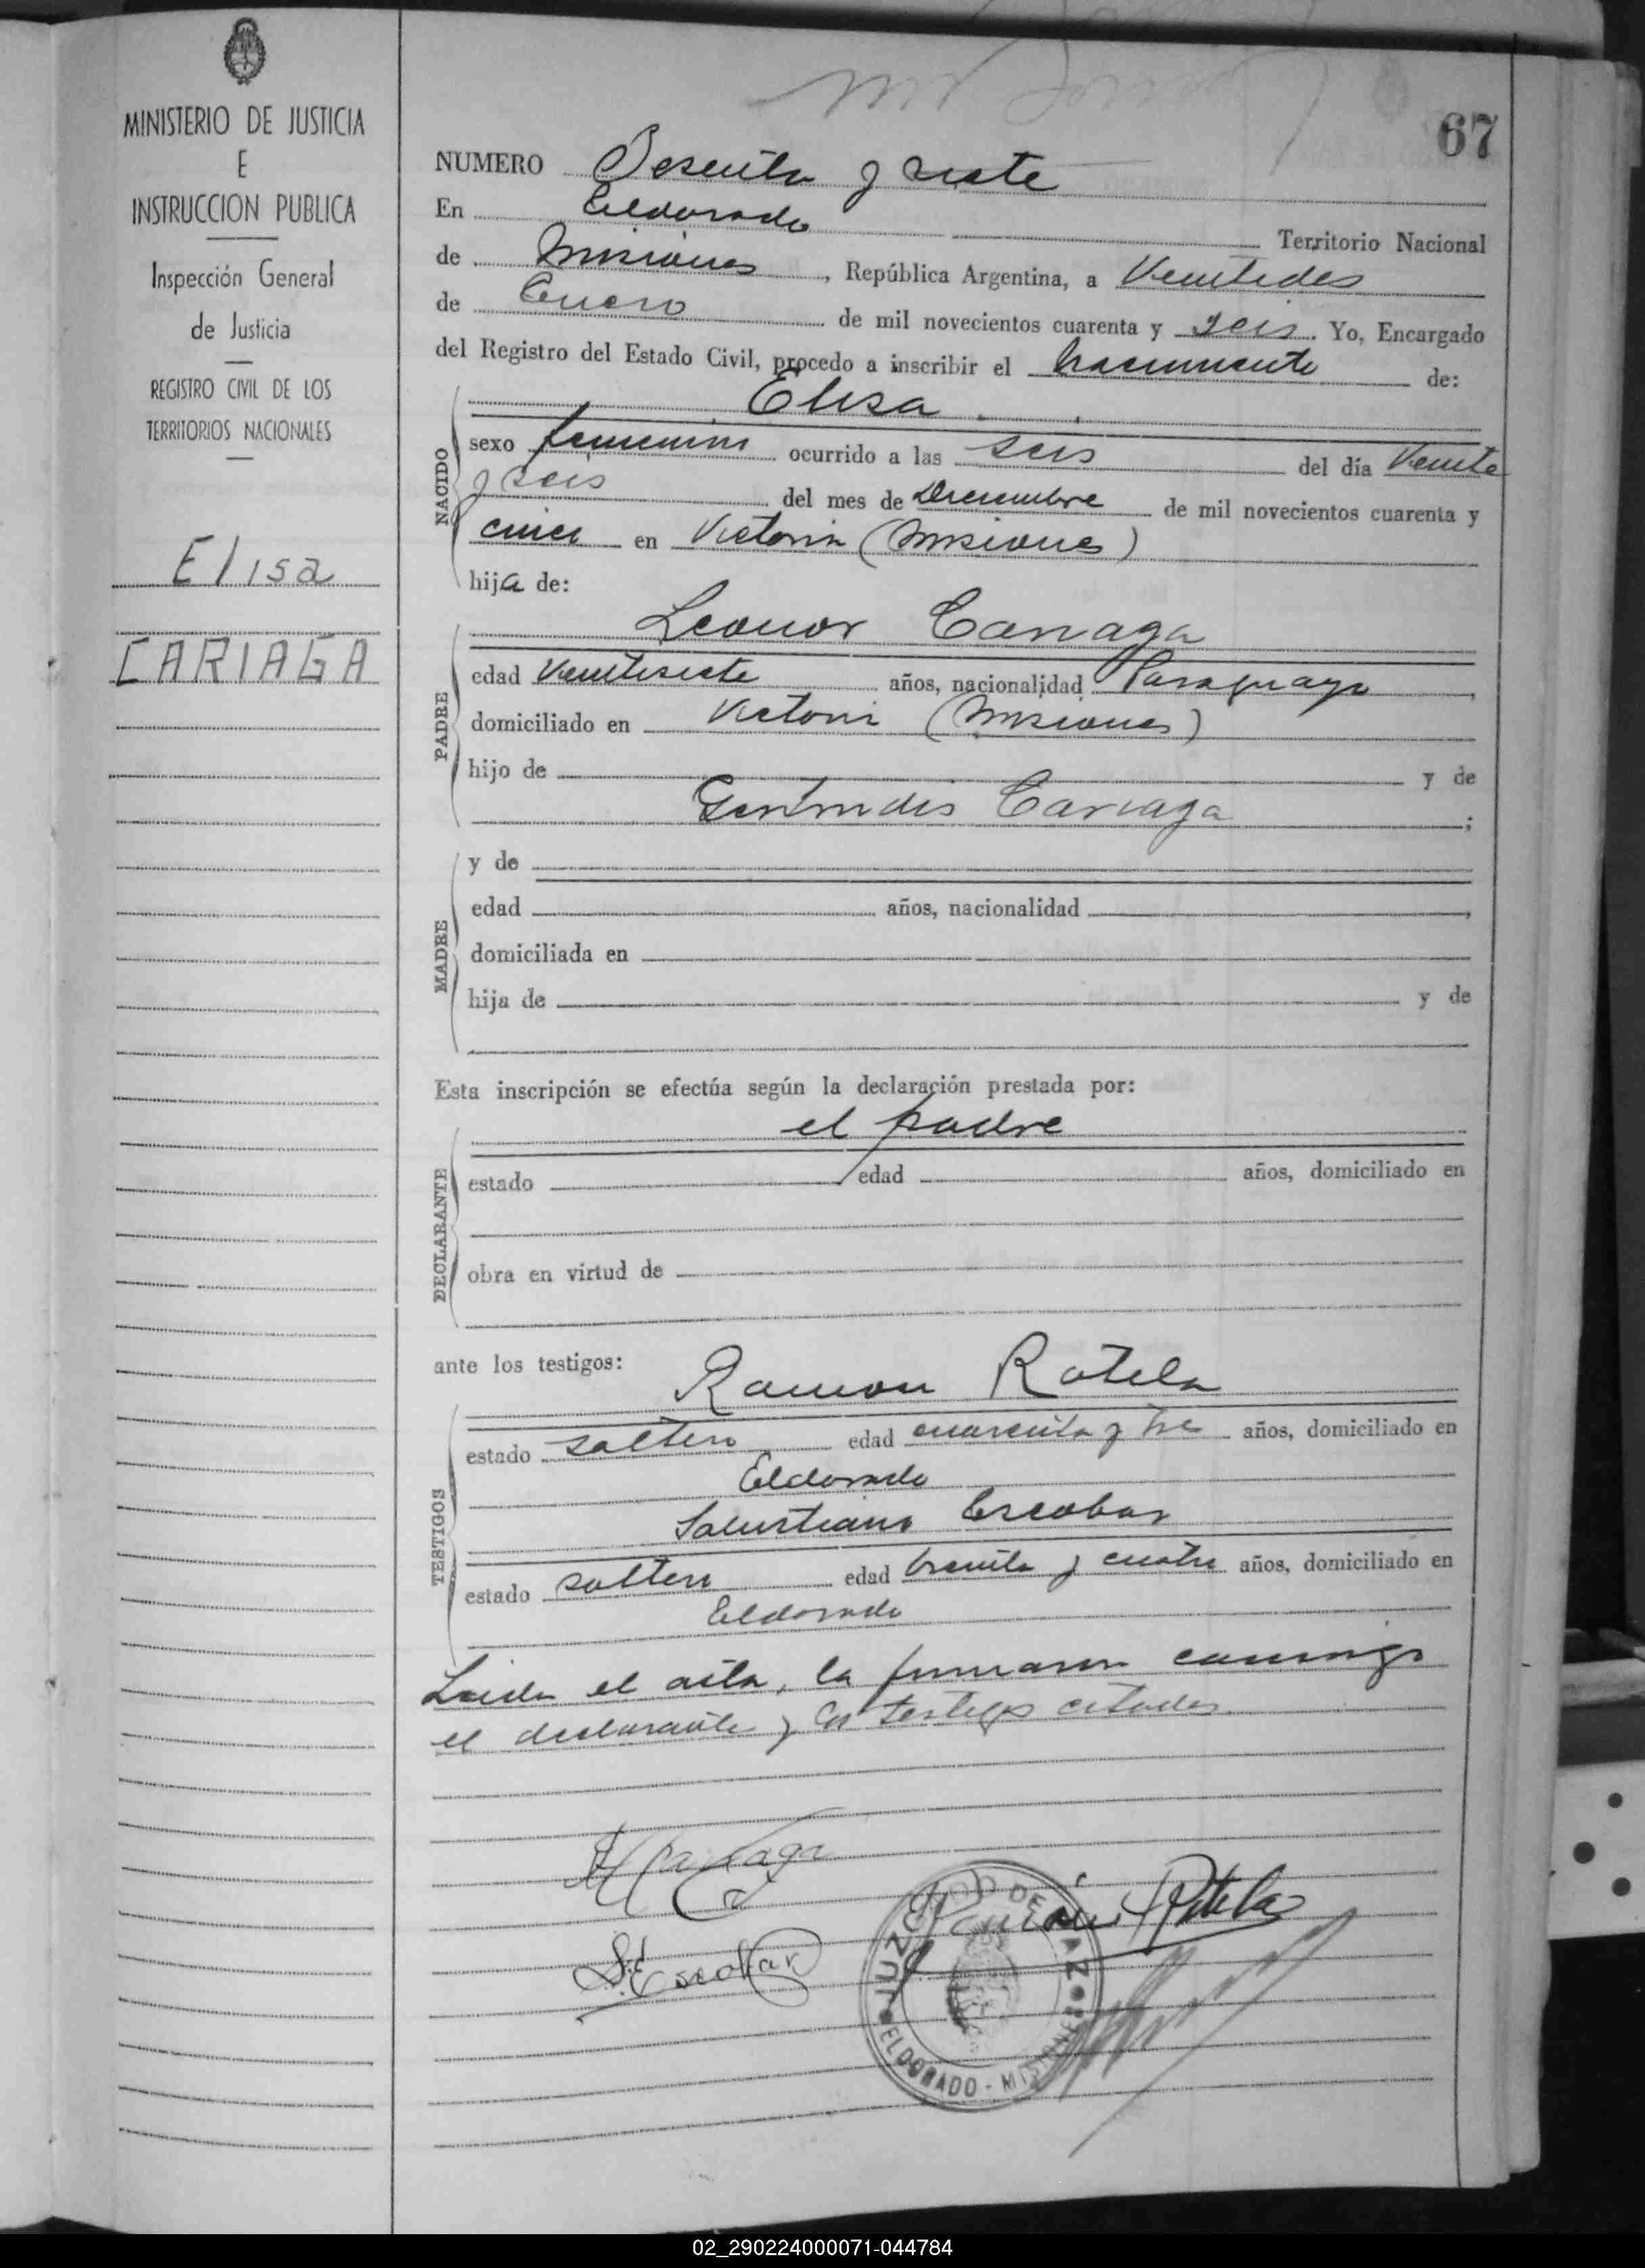 MINISTERIO DE JUSTICIA
E
INSTRUCCION PUBLICA
Inspección General
de Justicia
REGISTRO CIVIL DE LOS
TERRITORIOS NACIONALES
Elisa
CARIAGA
67
NUMERO Sesenta y siete
En Eldorado Territorio Nacional
de Misiones, República Argentina, a Veintidos
de Enero de mil novecientos cuarenta y seis. Yo, Encargado
del Registro del Estado Civil, procedo a inscribir el nacimiento de:
Elisa
NACIDO
sexo femenino ocurrido a las seis del día Veinte
y seis del mes de Diciembre de mil novecientos cuarenta y
cinco en Victoria (Misiones)
hija de:
Leonor Cariaga
PADRE
edad Veintisiete años, nacionalidad Paraguaya,
domiciliado en Victoria (Misiones)
hijo de y de
Gertrudis Cariaga;
MADRE
y de
edad años, nacionalidad,
domiciliada en
hija de y de
Esta inscripción se efectúa según la declaración prestada por:
el padre
DECLARANTE
estado edad años, domiciliado en
obra en virtud de
ante los testigos:
Ramon Rotela
TESTIGOS
estado soltero edad cuarenta y tres años, domiciliado en
Eldorado
Salustiano Escobar
estado soltero edad treinta y cuatro años, domiciliado en
Eldorado
Leida el acta, la firmaron conmigo
el declarante y los testigos citados
Cariaga
Ramón Rotela
S. Escobar
JUZGADO DE PAZ
ELDORADO - MISIONES
02_290224000071-044784